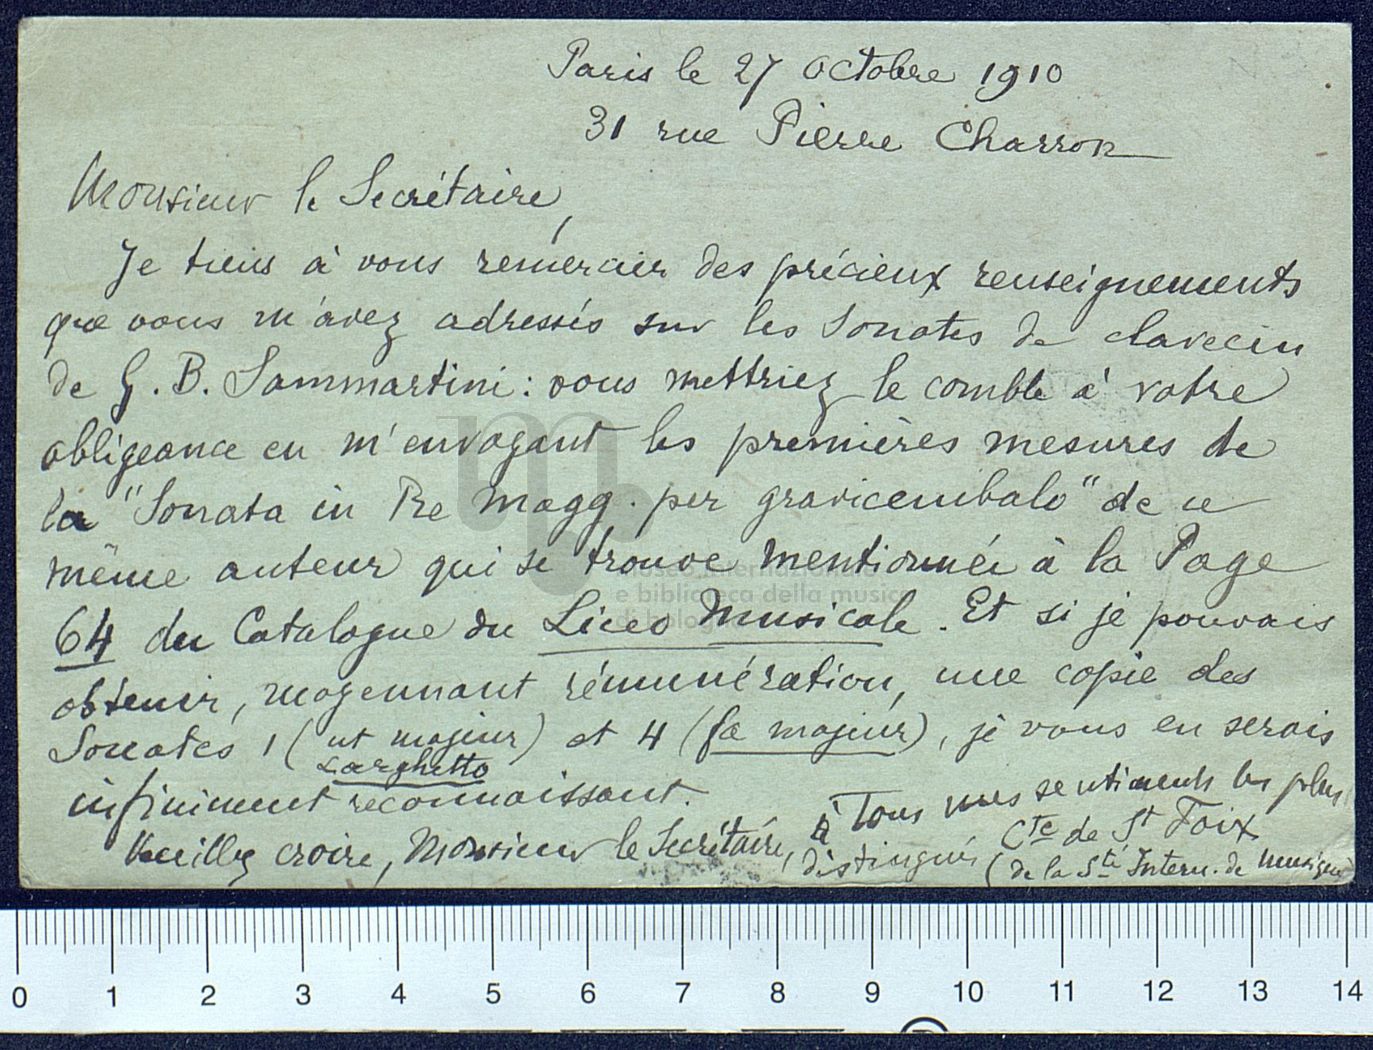 Paris le 27 octobre 1910
31 rue Pierre Charron
Monsieur le Secrétaire,
Je tiens à vous remercier des précieux renseignements
que vous m'avez adressés sur les Sonates de clavecin
de G. B. Sammartini : vous mettriez le comble à votre
obligeance en m'envoyant les premières mesures de
la "Sonata in Re magg. per gravicembalo" de ce
même auteur qui se trouve mentionnée à la Page
64 du Catalogue du Liceo Musicale. Et si je pouvais
obtenir, moyennant rémunération, une copie des
Sonates 1 (ut majeur) et 4 (fa majeur), je vous en serais
Larghetto
infiniment reconnaissant.
Veuillez croire, Monsieur le Secrétaire, à Tous mes sentiments les plus
distingués
Cte de St Foix
(de la Sté Intern. de musique
museo internazionale
e biblioteca della musica
di bologna
0 1 2 3 4 5 6 7 8 9 10 11 12 13 14